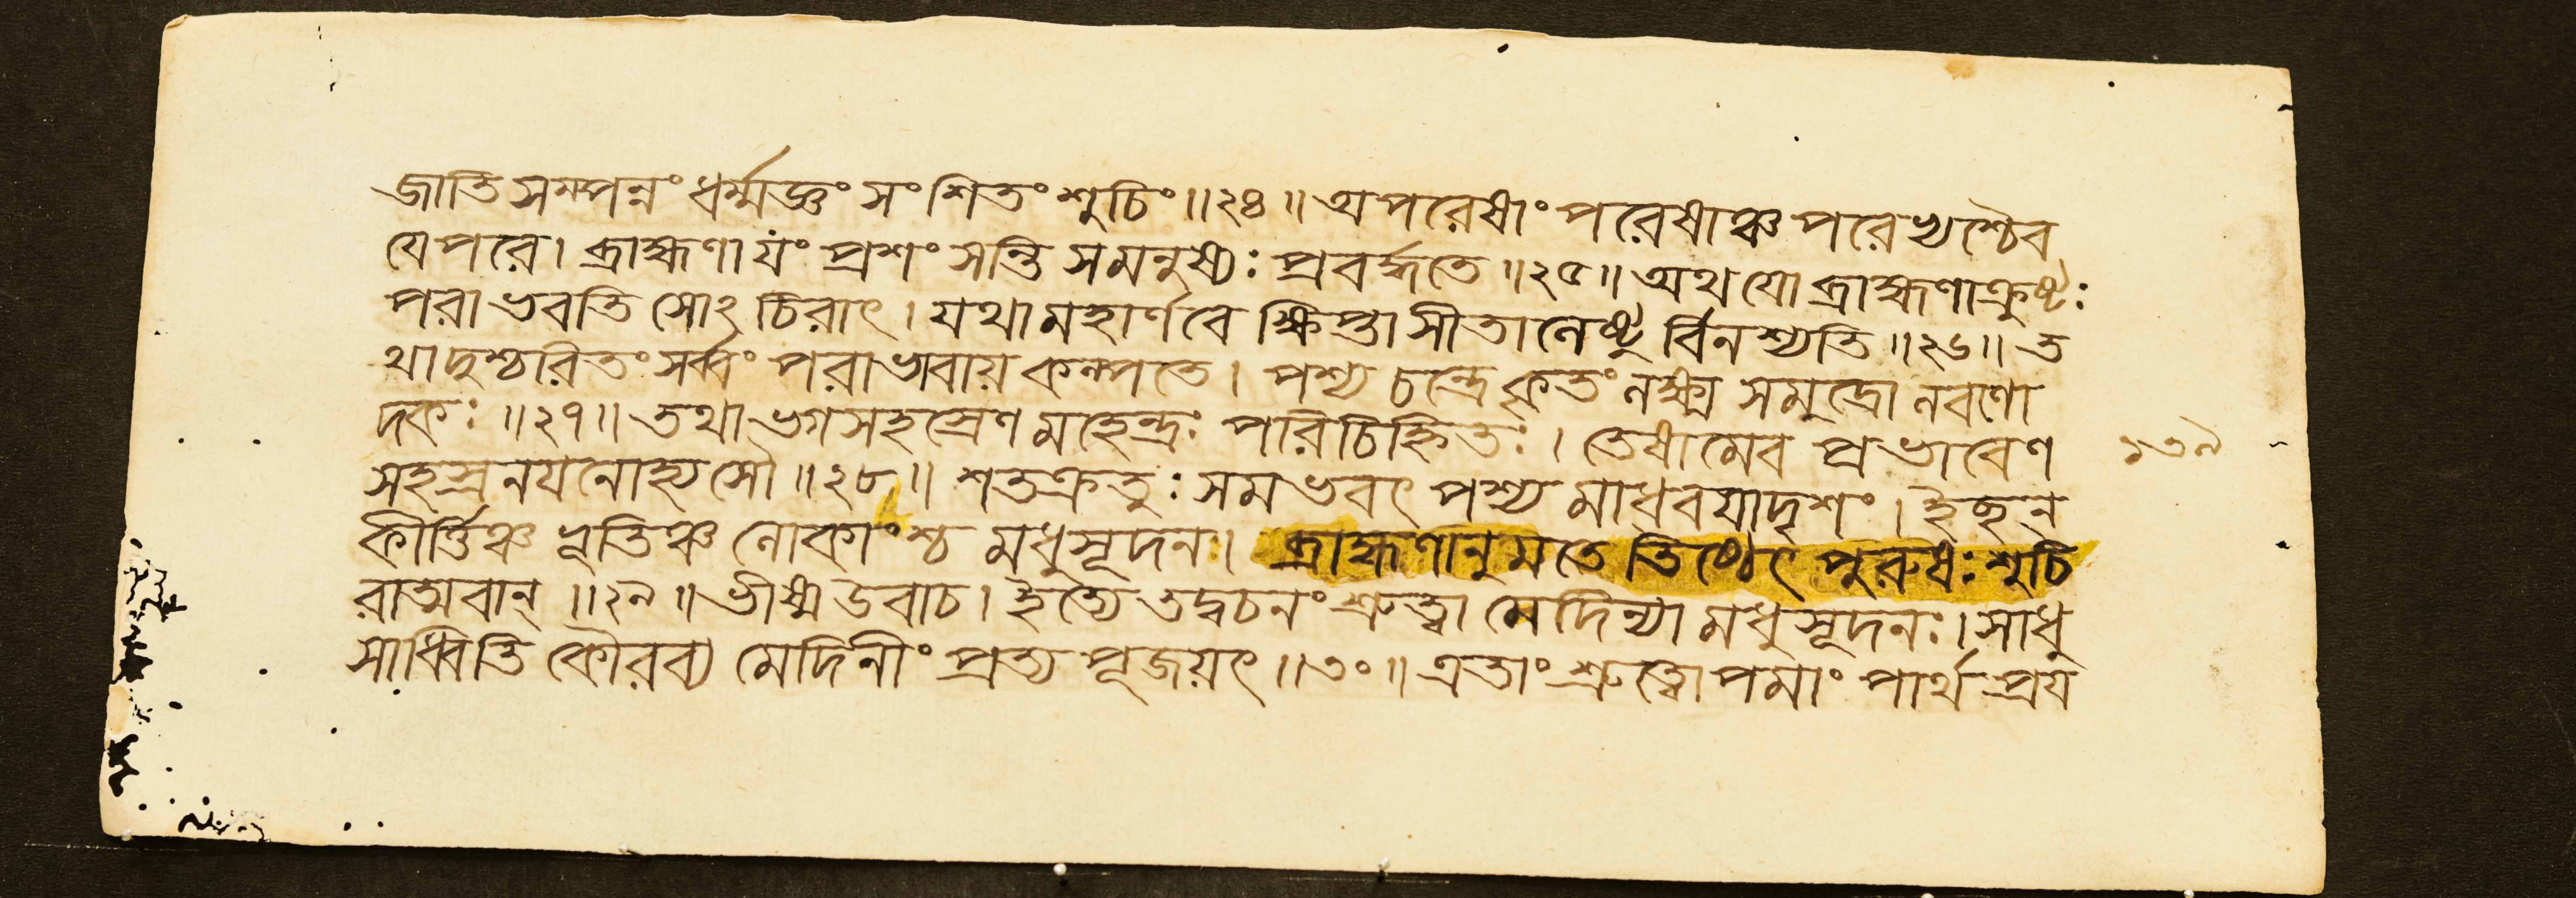 জাতিসম্পন্নং ধর্ম্মজ্ঞং সংশিতং শুচিং ॥২৪॥ অপরেষাং পরেষাঞ্চ পরেভ্যশ্চৈব
যেপরে। ব্রাহ্মণাযং প্রশংসন্তি সমনুষ্যঃ প্রবর্দ্ধতে ॥২৫॥ অথ যো ব্রাহ্মণাক্রুষ্টঃ
পরাভবতি সোঽচিরাৎ। যথামহার্ণবে ক্ষিপ্তা সীতানেষ্টু র্বিনশ্যতি ॥২৬॥ ত
থাদুশ্চরিতং সর্ব্বং পরাভাবায় কল্পতে। পশ্য চন্দ্রে কৃতং লক্ষ্ম সমুদ্রো লবণো
দকঃ ॥২৭॥ তথা ভগসহস্রেণ মহেন্দ্রঃ পরিচিহ্নিতঃ। তেষামেব প্রভাবেণ ১৩৯
সহস্রনযনোহ্যসৌ ॥২৮॥ শতক্রতুঃ সমভবৎ পশ্য মাধবযাদৃশং। ইছন্
কীর্ত্তিঞ্চ ভূতিঞ্চ লোকাংশ্চ মধুসূদন। ব্রাহ্মণানুমতে তিষ্ঠেৎ পুরুষঃ শুচি
রাত্মবান্ ॥২৯॥ ভীষ্ম উবাচ। ইত্যেতদ্বচনং শ্রুত্বা মেদিন্যা মধুসূদনঃ। সাধু
সাধ্বিতি কৌরব্য মেদিনীং প্রত্যপূজয়ৎ ॥৩০॥ এতাং শ্রুত্বোপমাং পার্থ প্রয